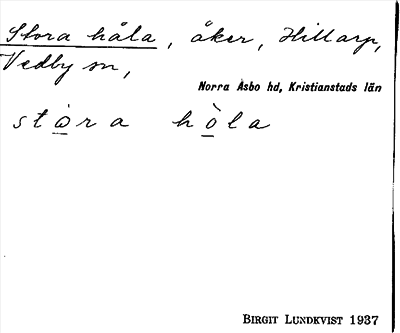 Stora håla, åker, Hillarp,
Vedby sn,
Norra Åsbo hd, Kristianstads län
stò̲ra hò̲la
BIRGIT LUNDKVIST 1937